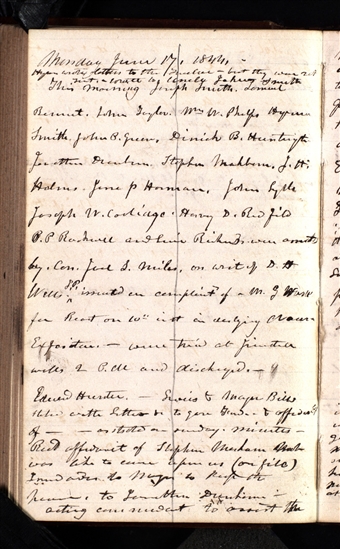 Monday June 17. 1844.
Hyrum wrote letters to the Twelve - but they were not
sent. wrote by Uncle John Smith
This morning Joseph Smith. Samuel
Bennet. John Taylor. Wm W. Phelps Hyrum
Smith. John P. Green, Dimick B. Huntingtn
Jonathan Dunham. Stephen Markham. J. H.
Holmes. Jonathan Holmes. John Lytle
Joseph W. Coolidge. Harvy D. Redfild
O. P. Rockwell and Levi Richards were arrested
by. Con. Joel S. Miles, on writ of D. H
Wells. issued on complaint of W. G. Ware
for Riot on 10th inst in destroying Nauvoo
Expositor - were tried at Justice
wells 2 P.M and discharged. -
Edward Hunter. - Lewis & Major Bills
with letter to to gove Ford. & affidavits
of - - as stated on sundays minutes -
Recd affidavit of Stephen Markham that
was like to come upon us (on file)
Issued order to Major to keep the
peace, to Jonathan Dunham -
acting commandant to assist the